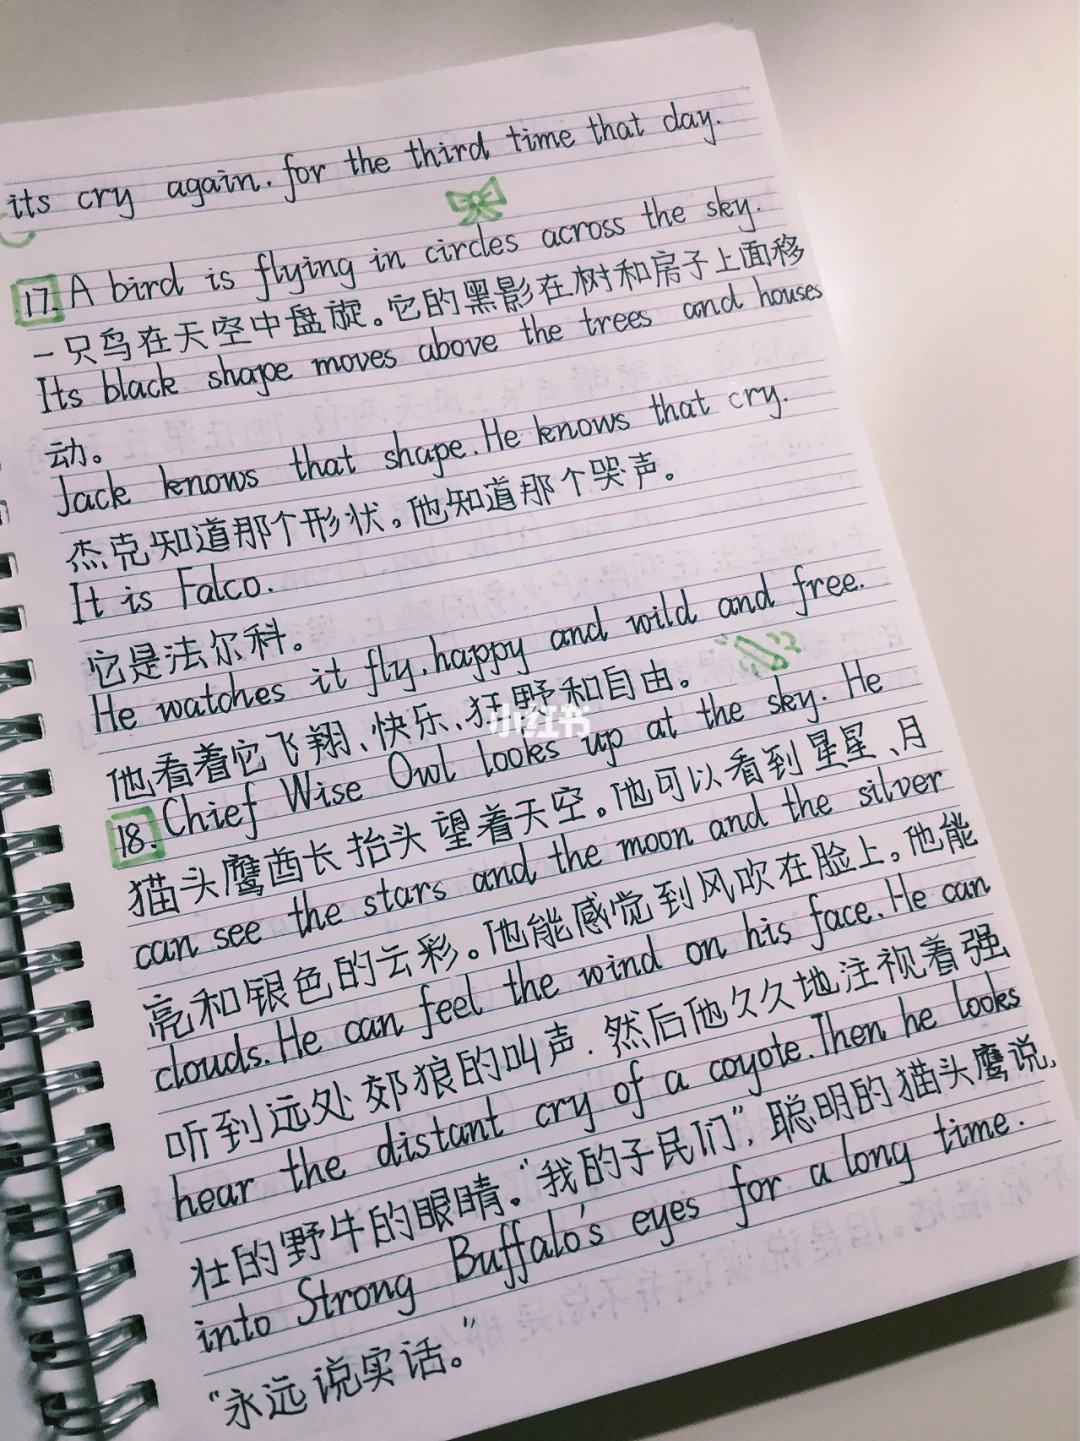 its cry again. for the third time that day.
17. A bird is flying in circles across the sky.
一只鸟在天空中盘旋。它的黑影在树和房子上面移
Its black shape moves above the trees and houses
动。
Jack knows that shape. He knows that cry.
杰克知道那个形状。他知道那个哭声。
It is Falco.
它是法尔科。
He watches it fly, happy and wild and free.
他看着它飞翔、快乐、狂野和自由。
小红书
18. Chief Wise Owl looks up at the sky. He
猫头鹰酋长抬头望着天空。他可以看到星星、月
can see the stars and the moon and the silver
亮和银色的云彩。他能感觉到风吹在脸上。他能
clouds. He can feel the wind on his face. He can
听到远处郊狼的叫声. 然后他久久地注视着强
hear the distant cry of a coyote. Then he looks
壮的野牛的眼睛。“我的子民们”, 聪明的猫头鹰说,
into Strong Buffalo's eyes for a long time.
“永远说实话。”